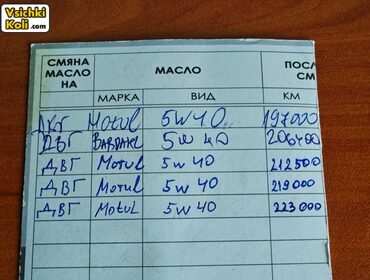 Vsichki
Koli.com
СМЯНА
МАСЛО
НА
МАСЛО
ПОСЛ
СМ
МАРКА
ВИД
КМ
ДВГ Motul 5w40 197000
ДВГ 5w40 206400
ДВГ Motul 5w40 212500
ДВГ Motul 5w40 219000
ДВГ Motul 5w40 223000